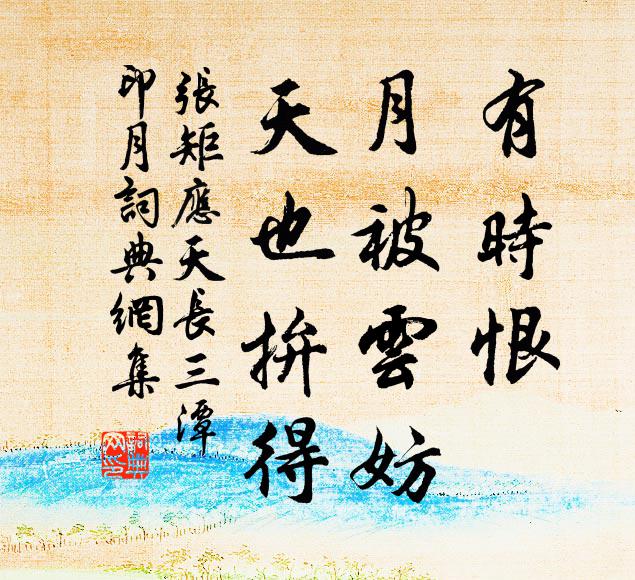 有時恨
月被雲妨
天也拚得
張矩應天長三潭
印月詞典網集